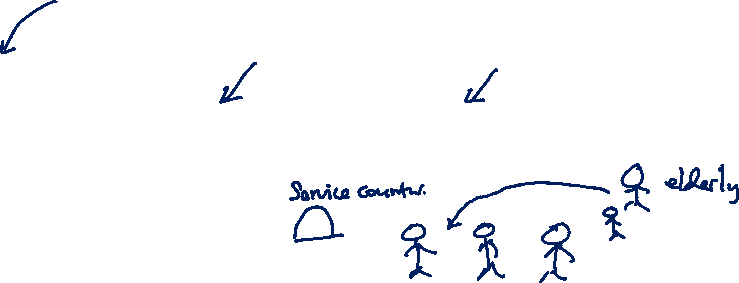 Service counter.
elderly